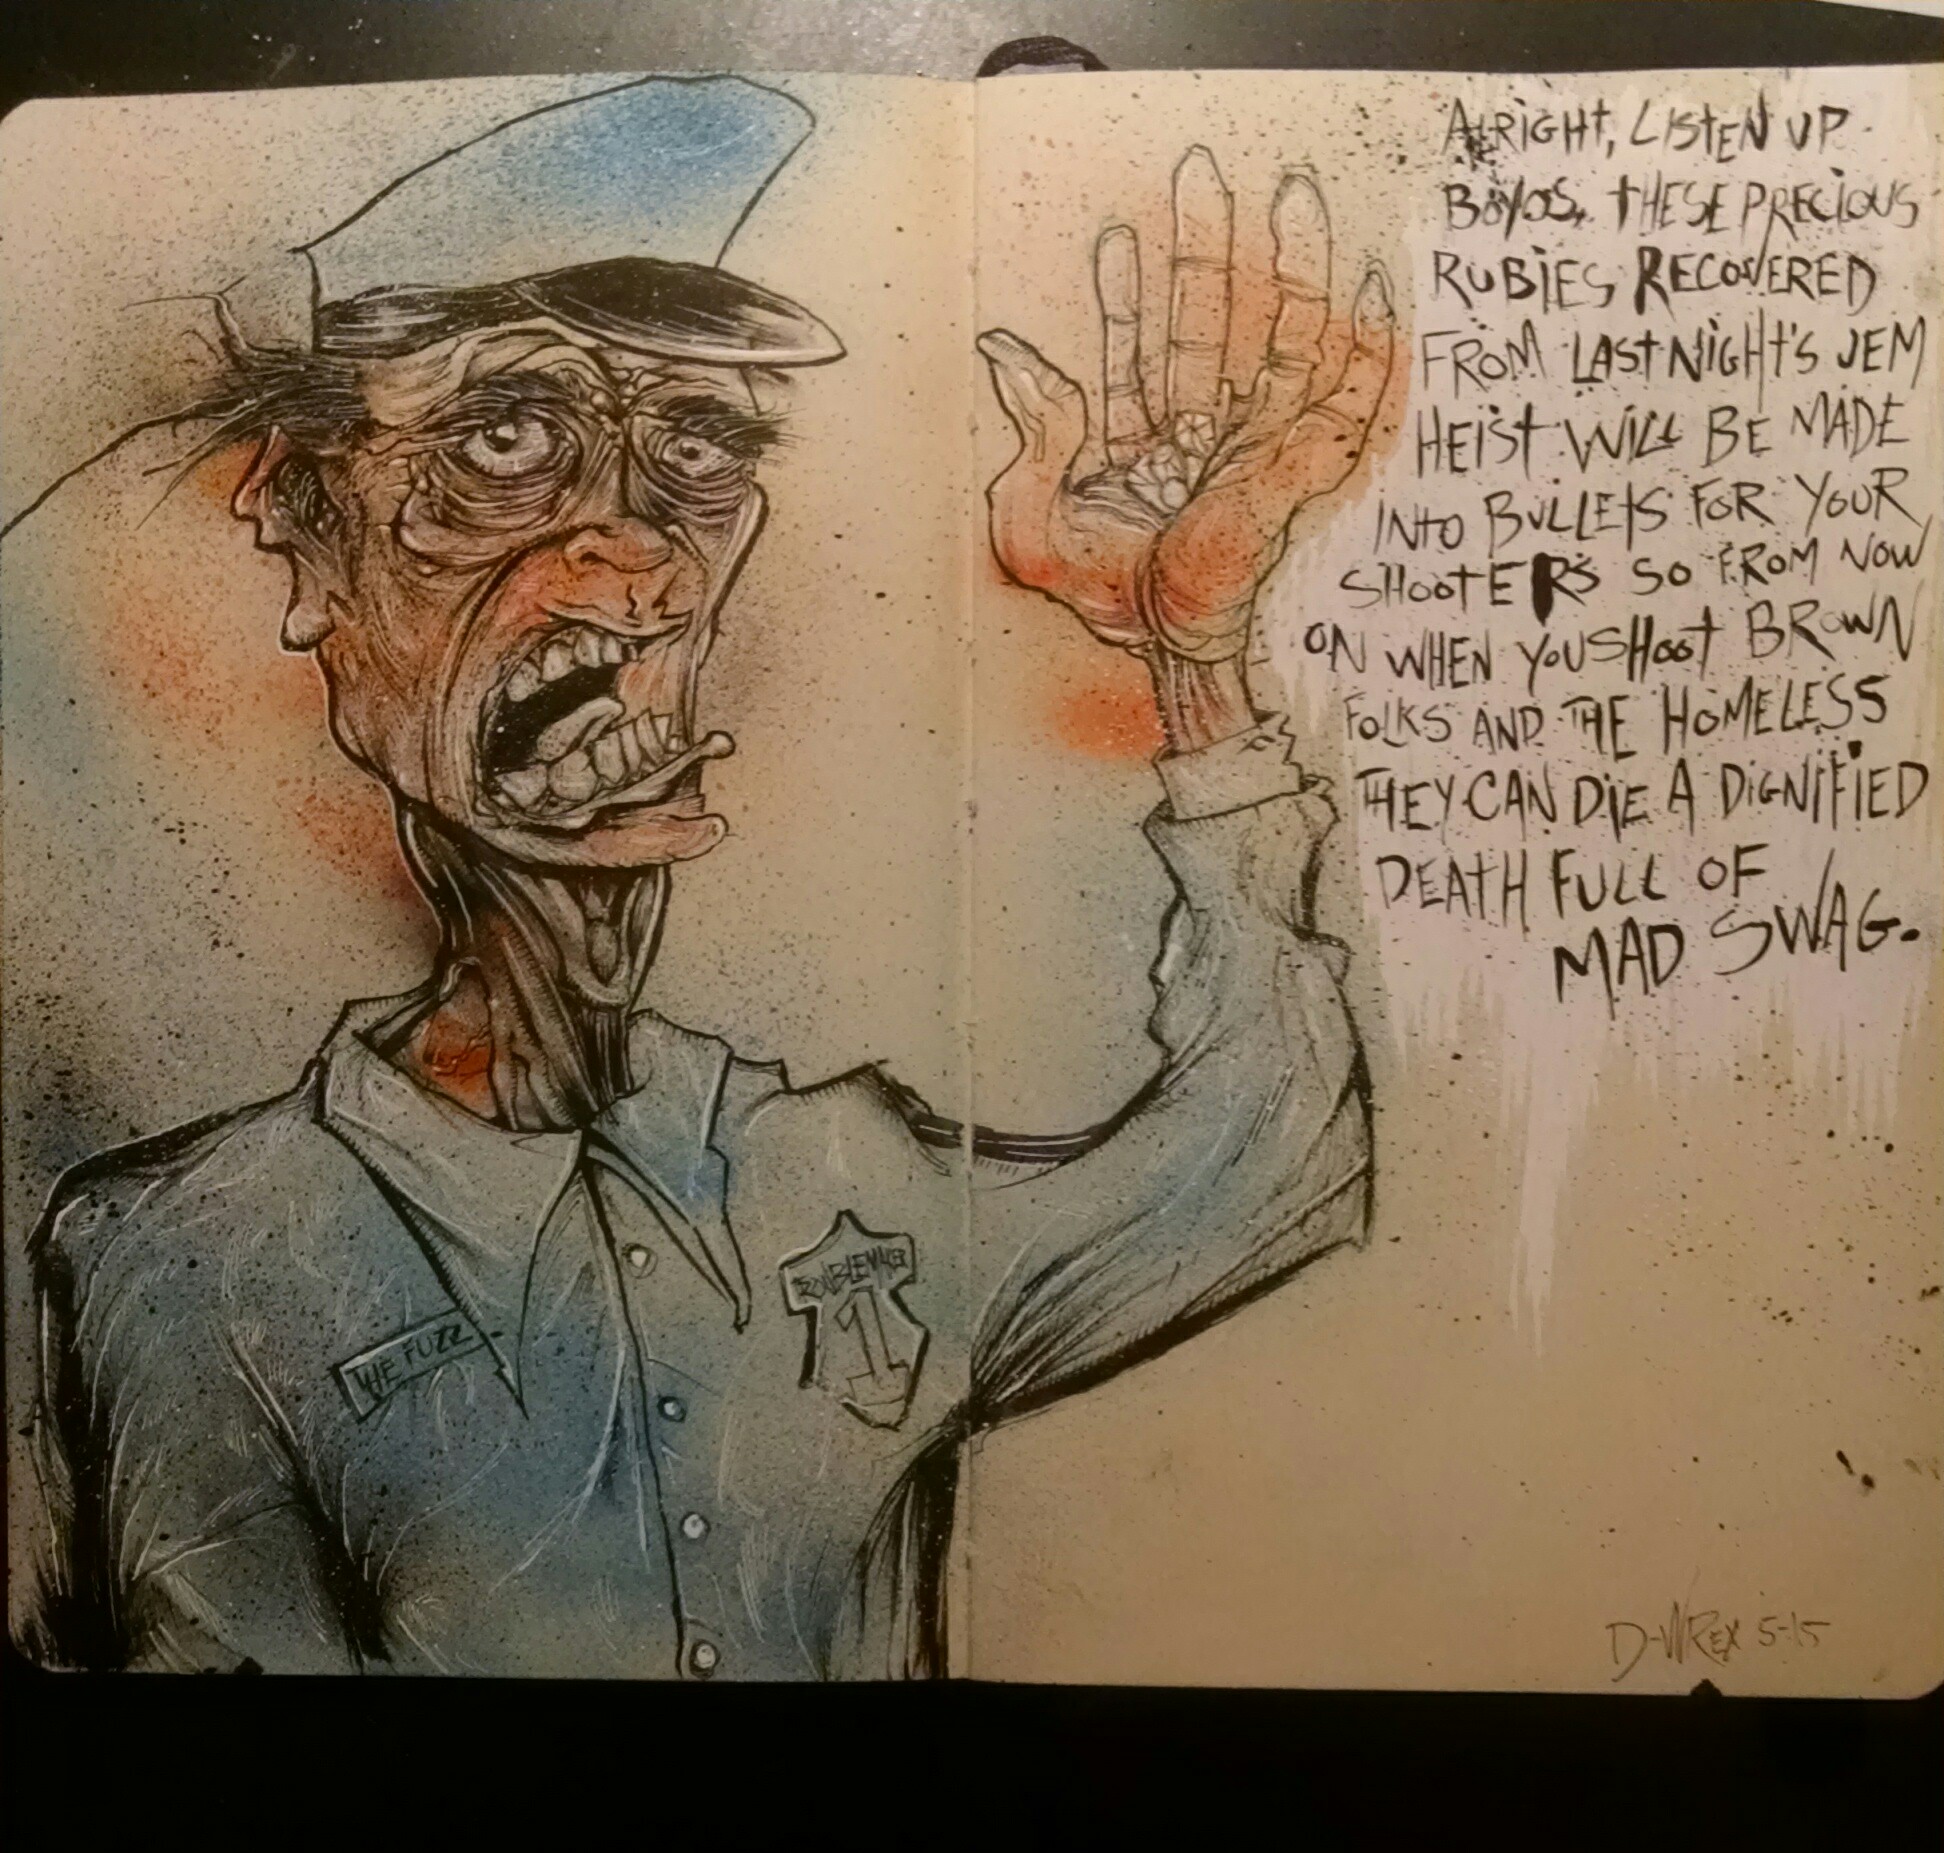 ALRIGHT, LISTEN UP
BOYOS, THESE PRECIOUS
RUBIES RECOVERED
FROM LAST NIGHT'S JEM
HEIST WILL BE MADE
INTO BULLETS FOR YOUR
SHOOTERS SO FROM NOW
ON WHEN YOU SHOOT BROWN
FOLKS AND THE HOMELESS
THEY CAN DIE A DIGNIFIED
DEATH FULL OF
MAD SWAG.
TROUBLEMAKER
1
THE FUZZ
D-WREX 5-15